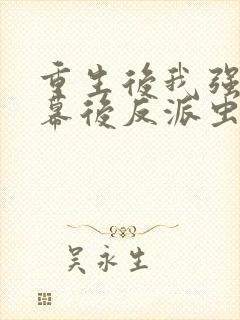 重生後我强
幕後反派虫
吴永生